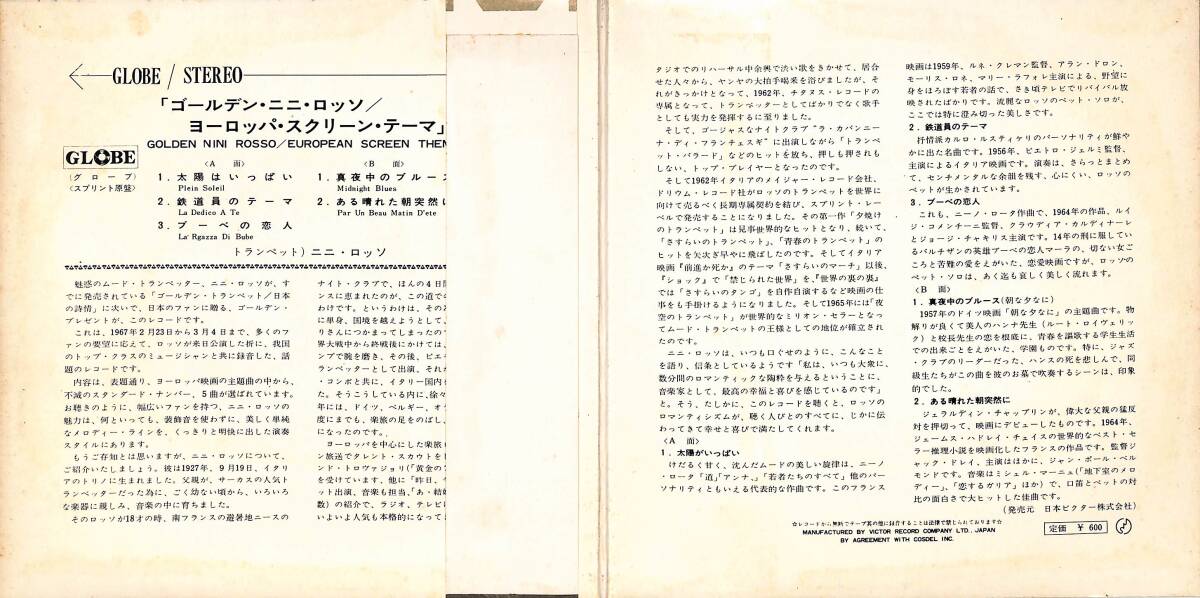 GLOBE / STEREO
「ゴールデン・ニニ・ロッソ／
ヨーロッパ・スクリーン・テーマ」
GOLDEN NINI ROSSO/EUROPEAN SCREEN THEM
GLOBE
(グ ロ ー ブ)
(スプリント原盤)
〈A 面〉
1．太 陽 は い っ ぱ い
Plein Soleil
2．鉄 道 員 の テ ー マ
La Dedico A Te
3．ブ ー ベ の 恋 人
La' Rgazza Di Bube
〈B 面〉
1．真 夜 中 の ブ ル ー ス
Midnight Blues
2．あ る 晴 れ た 朝 突 然 に
Par Un Beau Matin D'ete
トランペット）ニ ニ ・ ロ ッ ソ
魅惑のムード・トランペッター、ニニ・ロッソが、す
でに発売されている「ゴールデン・トランペット/日本
の詩情」に次いで、日本のファンに贈る、ゴールデン・
プレゼントが、このレコードです。
これは、1967年２月23日から３月４日まで、多くのフ
ァンの要望に応えて、ロッソが来日公演した折に、我国
のトップ・クラスのミュージシャンと共に録音した、話
題のレコードです。
内容は、表題通り、ヨーロッパ映画の主題曲の中から、
不滅のスタンダード・ナンバー、５曲が選ばれています。
お聴きのように、幅広いファンを持つ、ニニ・ロッソの
魅力は、何といっても、装飾音を使わずに、美しく単純
なメロディー・ラインを、くっきりと明快に出した演奏
スタイルにあります。
もうご存知とは思いますが、ニニ・ロッソについて、
ご紹介いたしましょう。彼は1927年、９月19日、イタリ
アのトリノに生まれました。父親が、サーカスの人気ト
ランペッターだった為に、ごく幼ない頃から、いろいろ
な楽器に親しみ、音楽の中に育ちました。
そのロッソが18才の時、南フランスの避暑地ニースの
ナイト・クラブで、ほんの４日間
ンスに恵まれたのが、この道での
わけです。というわけは、その
に単身、国境を越えようとして、
りさんにつかまってしまったの
界大戦中から終戦後にかけては、
ンプで腕を磨き、その後、ピエ
ランペッターとして出演、それか
・コンボと共に、イタリー国内
た。そうこうしている内に、徐々
年には、ドイツ、ベルギー、オ
度にまでも、楽旅の足をのばし、
になったのです。
ヨーロッパを中心にした楽旅
ン放送でタレント・スカウトを
ンド・トロヴァジョリ（「黄金の
を受けています、他に「昨日、
ット出演、音楽も担当、「あ・結婚
数）の紹介で、ラジオ、テレビ
いよいよ人気も本格的になって
タジオでのリハーサル中余興で渋い歌をきかせて、居合
せた人々から、ヤンヤの大拍手喝采を浴びましたが、そ
れがきっかけとなって、1962年、チタヌス・レコードの
専属となって、トランペッターとしてばかりでなく歌手
としても実力を発揮するに至りました。
そして、ゴージャスなナイトクラブ“ラ・カバンニー
ナ・ディ・フランチェスギ”に出演しながら「トランペ
ット・バラード」などのヒットを放ち、押しも押されも
しない、トップ・プレイヤーとなったのです。
そして1962年イタリアのメイジャー・レコード会社、
ドリウム・レコード社がロッソのトランペットを世界に
向けて売るべく長期専属契約を結び、スプリント・レー
ベルで発売することになりました。その第一作「夕焼け
のトランペット」は見事世界的なヒットとなり、続いて、
「さすらいのトランペット」、「青春のトランペット」の
ヒットを欠次ぎ早やに飛ばしたのです。そしてイタリア
映画『前進か死か』のテーマ「さすらいのマーチ」以後、
『ショック』で「禁じられた世界」を、『世界の裏の裏』
では「さすらいのタンゴ」を自作自演するなど映画の仕
事をも手掛けるようになりました。そして1965年には「夜
空のトランペット」が世界的なミリオン・セラーとなっ
てムード・トランペットの王様としての地位が確立され
たのです。
ニニ・ロッソは、いつも口ぐせのように、こんなこと
を語り、信条としているようです「私は、いつも大衆に、
数分間のロマンティックな陶粋を与えるということに、
音楽家として、最高の幸福と喜びを感じているのです」
と。そう、たしかに、このレコードを聴くと、ロッソの
ロマンティシズムが、聴く人びとのすべてに、じかに伝
わってきて幸せと喜びで満たしてくれます。
〈A 面〉
1．太陽がいっぱい
けだるく甘く、沈んだムードの美しい旋律は、ニーノ
・ロータ「道」「アンナ」、「若者たちのすべて」他のパー
ソナリティともいえる代表的な作曲です。このフランス
映画は1959年、ルネ・クレマン監督、アラン・ドロン、
モーリス・ロネ、マリー・ラフォレ主演による、野望に
身をほろぼす若者の話で、さき頃テレビでリバイバル放
映されたばかりです。流麗なロッソのペット・ソロが、
ここでは特に澄み切った美しさです。
2．鉄道員のテーマ
抒情派カルロ・ルスティケリのパーソナリティが鮮や
かに出た名曲です。1956年、ピエトロ・ジェルミ監督、
主演によるイタリア映画です。演奏は、さらっとまとめ
て、センチメンタルな余韻を残す、心にくい、ロッソの
ペットが生かされています。
3．ブーベの恋人
これも、ニーノ・ロータ作曲で、1964年の作品、ルイ
ジ・コメンチーニ監督、クラウディア・カルディナーレ
とジョージ・チャキリス主演です。14年の刑に服してい
るパルチザンの英雄ブーベの恋人マーラの、切ない女ご
ころと苦難の愛をえがいた、恋愛映画ですが、ロッソの
ペット・ソロは、あく迄も哀しく美しく流れます。
〈B 面〉
1．真夜中のブルース(朝な夕なに)
1957年のドイツ映画「朝な夕なに」の主題曲です。物
解りが良くて美人のハンナ先生（ルート・ロイヴェリッ
ク）と校長先生の恋を根底に、青春を謳歌する学生生活
での出来ごとをえがいた、学園ものです。特に、ジャズ
・クラブのリーダーだった、ハンスの死を悲しんで、同
級生たちがこの曲を彼のお墓で吹奏するシーンは、印象
的でした。
2．ある晴れた朝突然に
ジェラルディン・チャップリンが、偉大な父親の猛反
対を押切って、映画にデビューしたものです。1964年、
ジェームス・ハドレイ・チェイスの世界的なベスト・セ
ラー推理小説を映画化したフランスの作品です。監督ジ
ャック・ドレイ、主演はほかに、ジャン・ポール・ベル
モンドです。音楽はミシェル・マーニュ(「地下室のメロ
ディー」、「恋するガリア」ほか）で、口笛とペットの対
比の面白さで大ヒットした佳曲です。
(発売元 日本ビクター株式会社)
☆レコードから無断でテープ其の他に録音することは法律で禁じられております☆
MANUFACTURED BY VICTOR RECORD COMPANY LTD., JAPAN
BY AGREEMENT WITH COSDEL INC.
定価 ￥ 600